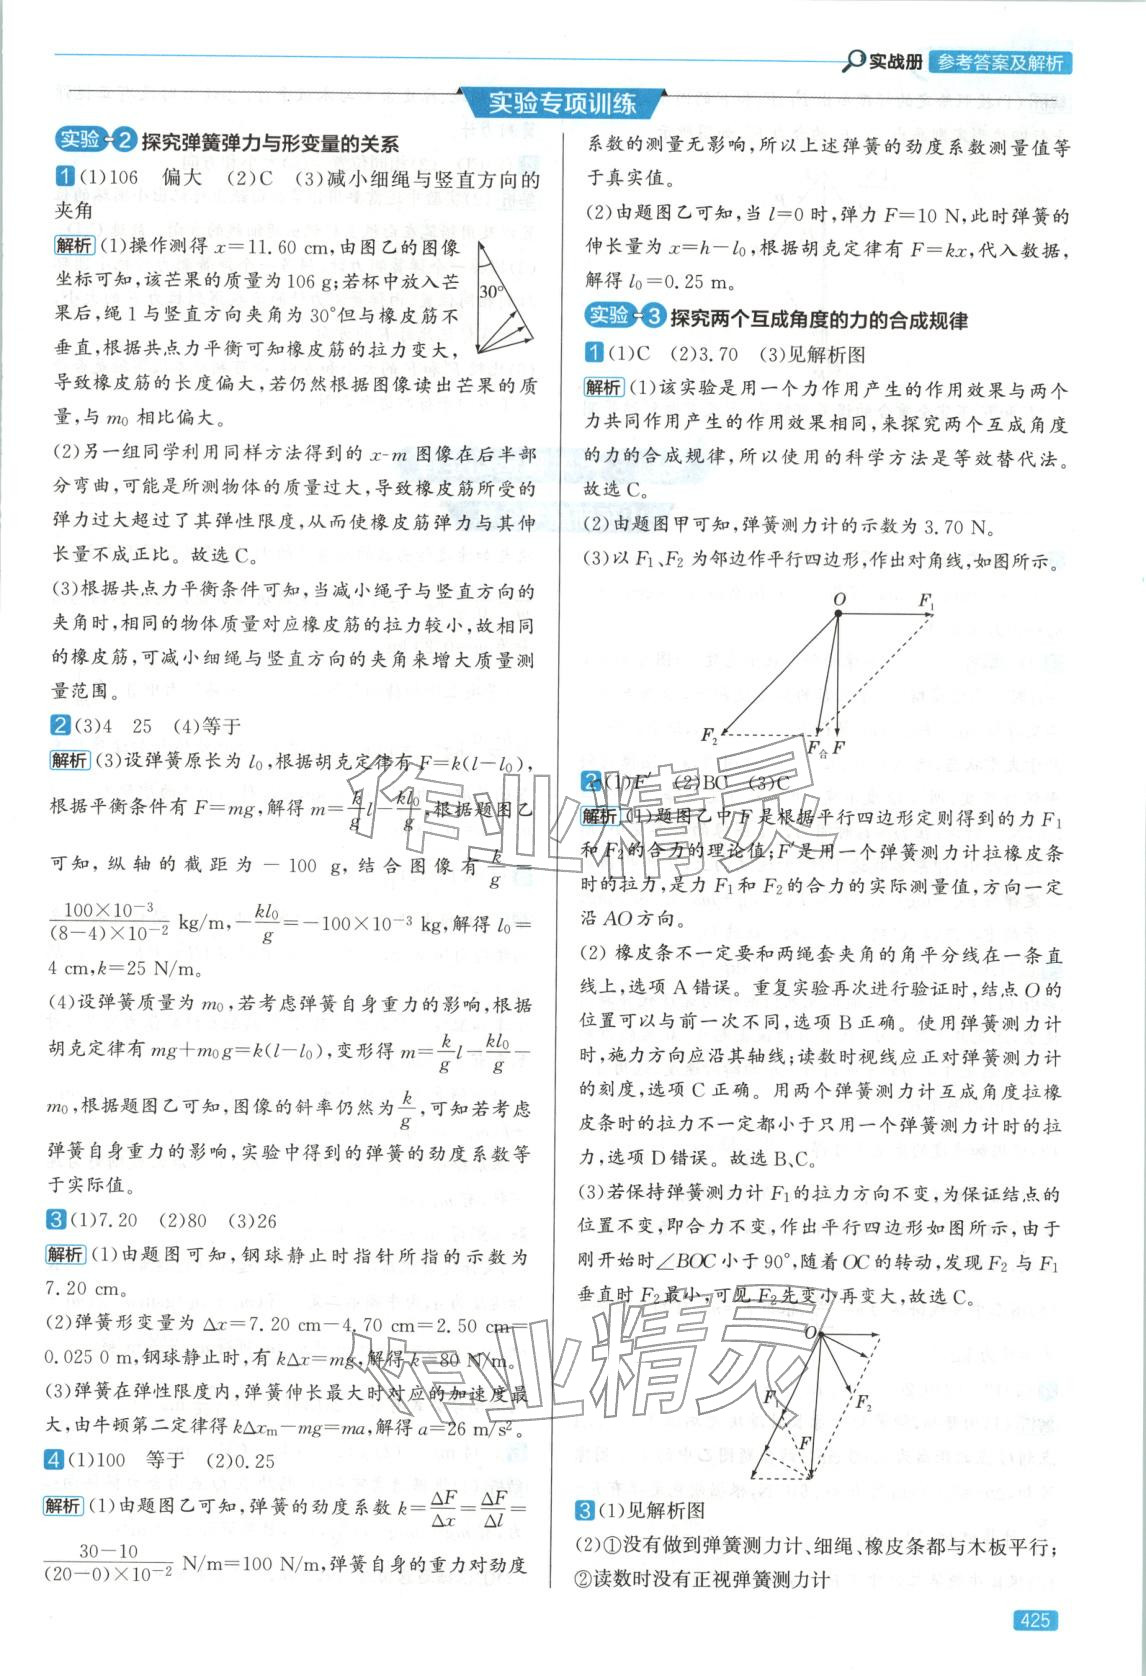 实战册 参考答案及解析
实验专项训练
实验-2 探究弹簧弹力与形变量的关系
1 (1)106 偏大 (2)C (3)减小细绳与竖直方向的
夹角
解析 (1)操作测得 x=11.60 cm,由图乙的图像
坐标可知,该芒果的质量为 106 g;若杯中放入芒
果后,绳 1 与竖直方向夹角为 30°但与橡皮筋不
垂直,根据共点力平衡可知橡皮筋的拉力变大,
导致橡皮筋的长度偏大,若仍然根据图像读出芒果的质
量,与 m₀ 相比偏大。
30°
(2)另一组同学利用同样方法得到的 x-m 图像在后半部
分弯曲,可能是所测物体的质量过大,导致橡皮筋所受的
弹力过大超过了其弹性限度,从而使橡皮筋弹力与其伸
长量不成正比。故选C。
(3)根据共点力平衡条件可知,当减小绳子与竖直方向的
夹角时,相同的物体质量对应橡皮筋的拉力较小,故相同
的橡皮筋,可减小细绳与竖直方向的夹角来增大质量测
量范围。
2 (3)4 25 (4)等于
解析 (3)设弹簧原长为 l₀,根据胡克定律有 F=k(l-l₀),
根据平衡条件有 F=mg,解得 m=k/g l-kl₀/g,根据题图乙
可知,纵轴的截距为-100 g,结合图像有 k/g=
100×10⁻³/(8-4)×10⁻² kg/m,-kl₀/g=-100×10⁻³ kg,解得 l₀=
4 cm,k=25 N/m。
(4)设弹簧质量为 m₀,若考虑弹簧自身重力的影响,根据
胡克定律有 mg+m₀g=k(l-l₀),变形得 m=k/g l-kl₀/g-
m₀,根据题图乙可知,图像的斜率仍然为 k/g,可知若考虑
弹簧自身重力的影响,实验中得到的弹簧的劲度系数等
于实际值。
3 (1)7.20 (2)80 (3)26
解析 (1)由题图可知,钢球静止时指针所指的示数为
7.20 cm。
(2)弹簧形变量为 Δx=7.20 cm-4.70 cm=2.50 cm=
0.025 0 m,钢球静止时,有 kΔx=mg,解得 k=80 N/m。
(3)弹簧在弹性限度内,弹簧伸长最大时对应的加速度最
大,由牛顿第二定律得 kΔxₘ-mg=ma,解得 a=26 m/s²。
4 (1)100 等于 (2)0.25
解析 (1)由题图乙可知,弹簧的劲度系数 k=ΔF/Δx=ΔF/Δl=
30-10/(20-0)×10⁻² N/m=100 N/m,弹簧自身的重力对劲度
系数的测量无影响,所以上述弹簧的劲度系数测量值等
于真实值。
(2)由题图乙可知,当 l=0 时,弹力 F=10 N,此时弹簧的
伸长量为 x=h-l₀,根据胡克定律有 F=kx,代入数据,
解得 l₀=0.25 m。
实验-3 探究两个互成角度的力的合成规律
1 (1)C (2)3.70 (3)见解析图
解析 (1)该实验是用一个力作用产生的作用效果与两个
力共同作用产生的作用效果相同,来探究两个互成角度
的力的合成规律,所以使用的科学方法是等效替代法。
故选C。
(2)由题图甲可知,弹簧测力计的示数为 3.70 N。
(3)以 F₁、F₂ 为邻边作平行四边形,作出对角线,如图所示。
O F₁
F₂ F合 F
2 (1)F′ (2)BC (3)C
解析 (1)题图乙中 F 是根据平行四边形定则得到的力 F₁
和 F₂的合力的理论值;F′是用一个弹簧测力计拉橡皮条
时的拉力,是力 F₁ 和 F₂ 的合力的实际测量值,方向一定
沿 AO 方向。
(2) 橡皮条不一定要和两绳套夹角的角平分线在一条直
线上,选项 A 错误。重复实验再次进行验证时,结点 O 的
位置可以与前一次不同,选项 B 正确。使用弹簧测力计
时,施力方向应沿其轴线;读数时视线应正对弹簧测力计
的刻度,选项 C 正确。用两个弹簧测力计互成角度拉橡
皮条时的拉力不一定都小于只用一个弹簧测力计时的拉
力,选项 D 错误。故选 B、C。
(3)若保持弹簧测力计 F₁的拉力方向不变,为保证结点的
位置不变,即合力不变,作出平行四边形如图所示,由于
刚开始时∠BOC 小于 90°,随着 OC 的转动,发现 F₂ 与 F₁
垂直时 F₂ 最小,可见 F₂ 先变小再变大,故选 C。
O
F₁ F₂
F
3 (1)见解析图
(2)①没有做到弹簧测力计、细绳、橡皮条都与木板平行;
②读数时没有正视弹簧测力计
作业精灵
作业精灵
425